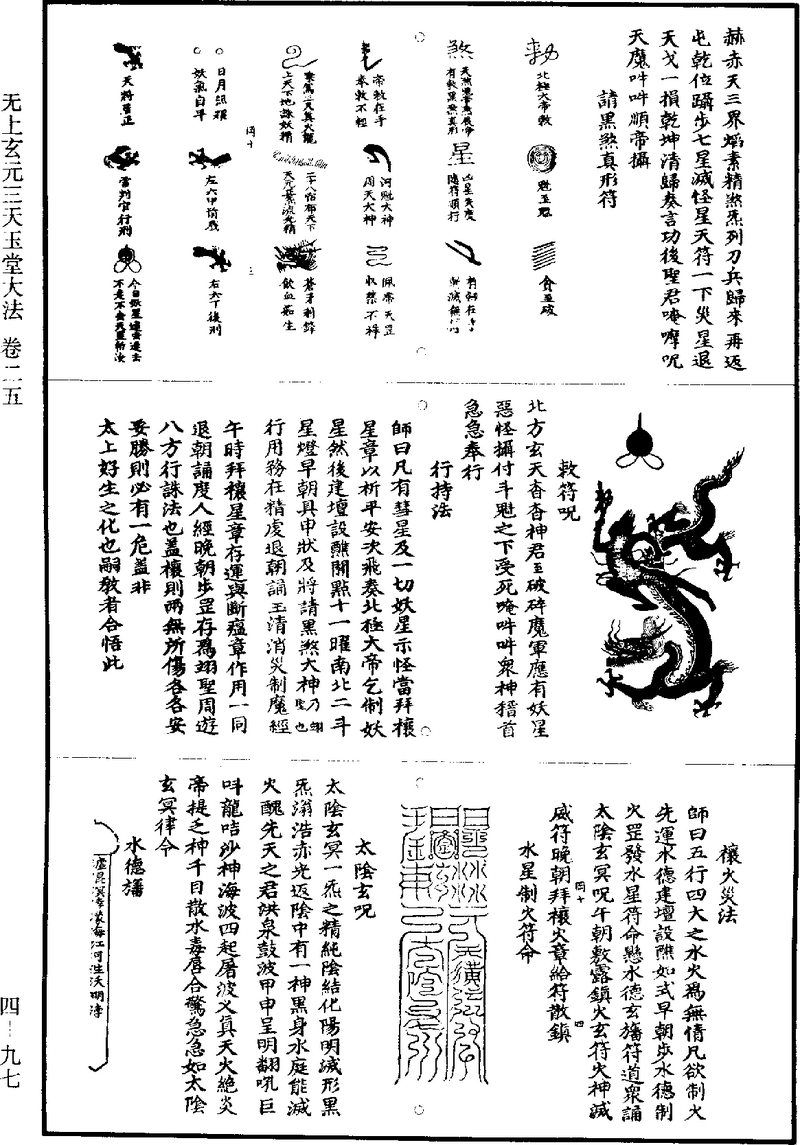 赫赤天三界焰素精煞炁列刀兵歸來再返
屯乾位躡步七星滅怪星天符一下災星退
天戈一損乾坤清歸奏言功後聖君唵嚤呪
天魔吽吽順帝攝
請黑煞真形符
北極大帝敕
魁罡魁
貪罡破
煞
星
凶星失度
隨符頭行
帝敕在手
奉敕不輕
河魁大神
周天大神
收禁不祥
上天下地誅妖精
二十八宿布天下
蒼牙利鋒
飲血茹生
日月
妖氣自平
左六甲前殿
右六丁後刑
天將
雷判官行刑
四十
三
敕符呪
北方玄天杳杳神君罡破碎魔軍應有妖星
惡怪攝付斗魁之下受死唵吽吽衆神稽首
急急奉行
行持法
師曰凡有彗星及一切妖星示怪當拜禳
星章以祈平安次飛奏北極大帝乞制妖
星然後建壇設醮關點十一曜南北二斗
星燈早朝具申狀及將請黑煞大神乃翊聖也
行用務在精虔退朝誦玉清消災制魔經
午時拜禳星章存運與斷瘟章作用一同
退朝誦度人經晚朝步罡存爲翊聖周遊
八方行誅法也蓋禳則兩無所傷各各安
妥勝則必有一危蓋非
太上好生之化也嗣教者合悟此
禳火災法
師曰五行四大之水火爲無情凡欲制火
先運水德建壇設醮如式早朝步水德制
火罡發水星符命懸水德玄旛符道衆誦
太陰玄冥呪午朝敷露鎮火玄符火神滅
威符晚朝拜禳火章給符散鎮
四十
四
水星制火符命
太陰玄呪
太陰玄冥一炁之精純陰結化陽明滅形黑
炁滃浩赤光返陰中有一神黑身水庭能滅
火醜先天之君洪泉鼓波甲申呈明翻吼巨
呌龍咭沙神海波四起屠波乂真天火絶炎
帝提之神千日散水毒唇合驚急急如太陰
玄冥律令
水德旛
无上玄元三天玉堂大法 卷二五
四-九七